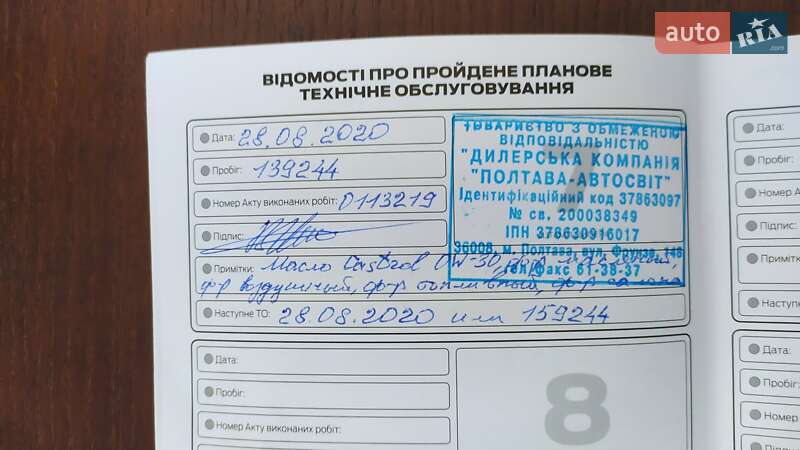 auto RIA.com
ВІДОМОСТІ ПРО ПРОЙДЕНЕ ПЛАНОВЕ
ТЕХНІЧНЕ ОБСЛУГОВУВАННЯ
Дата: 28.08.2020
Пробіг: 139244
Номер Акту виконаних робіт: 0113219
Підпис:
Примітки: Масло Castrol 0W-30, ф-р масляный,
ф-р воздушный, ф-р топливный, ф-р салона
Наступне ТО: 28.08.2020 или 159244
ТОВАРИСТВО З ОБМЕЖЕНОЮ
ВІДПОВІДАЛЬНІСТЮ
"ДИЛЕРСЬКА КОМПАНІЯ
"ПОЛТАВА-АВТОСВІТ"
Ідентифікаційний код 37863097
№ св. 200038349
ІПН 378630916017
36008, м. Полтава, вул. Фрунзе, 148
тел/факс 61-38-37
Дата:
Пробіг:
Номер Акту виконаних робіт:
8
Дата:
Пробіг:
Номер А
Підпис:
Примітки:
Наступн
Дата:
Пробіг:
Номер
Підпис